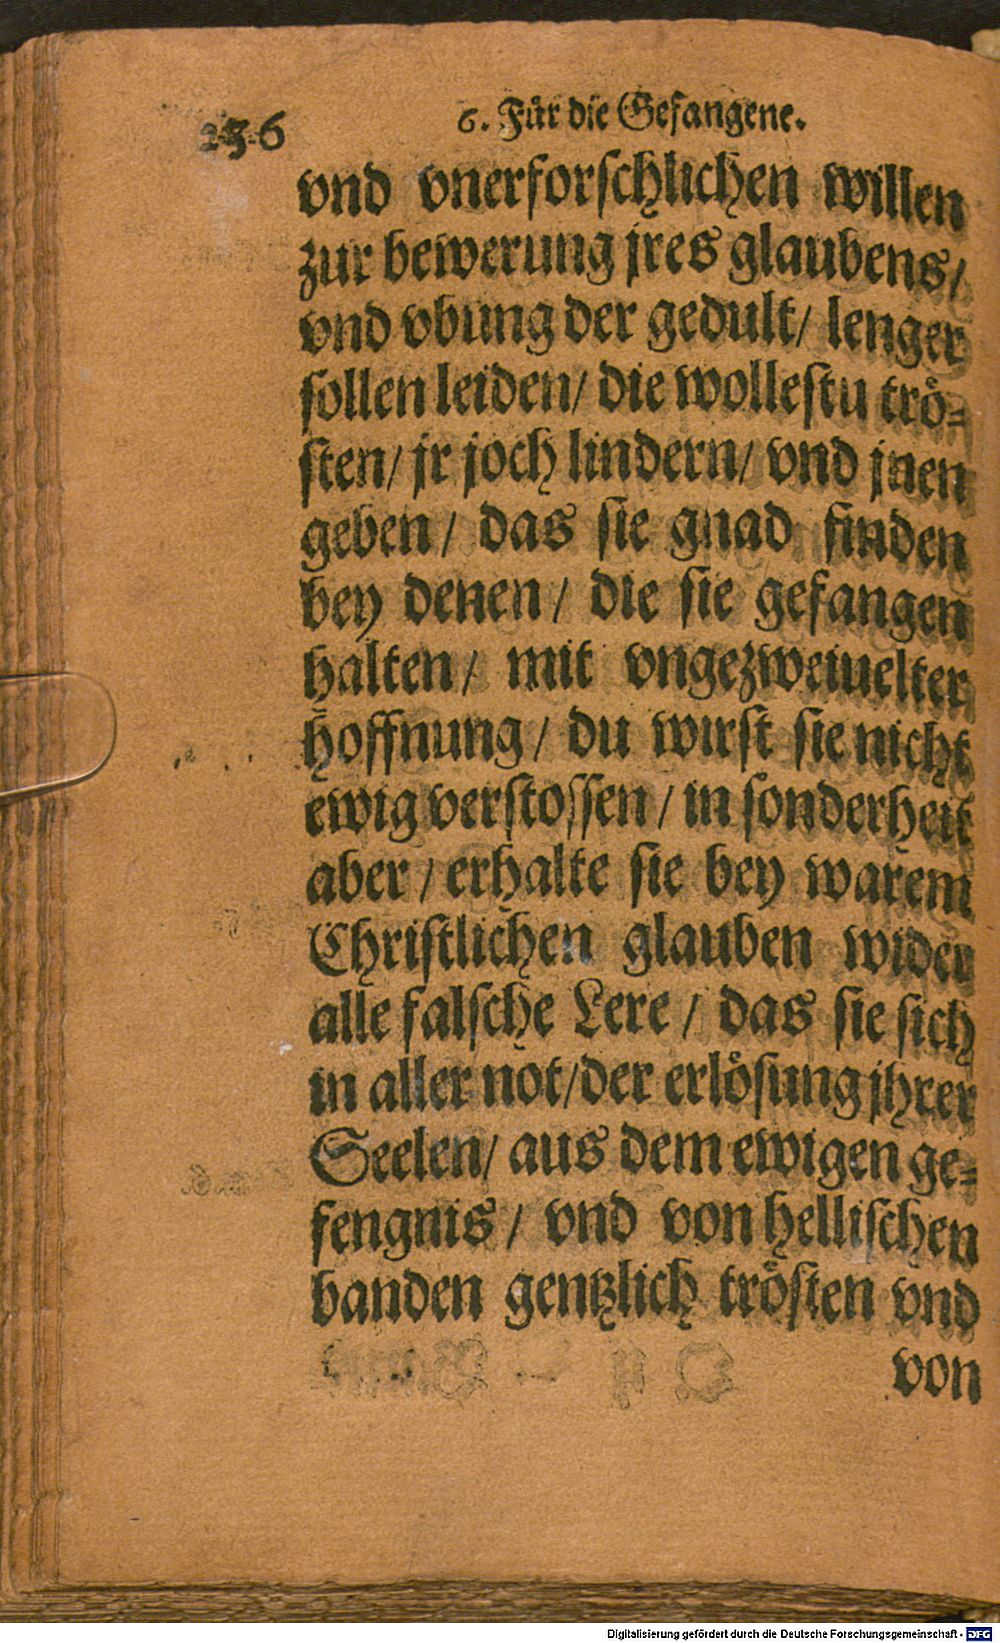 236
6. Für die Gefangene.
vnd vnerforſchlichen willen
zur bewerung jres glaubens/
vnd vbung der gedult/ lenger
ſollen leiden/ die wolleſtu trö⸗
ſten/ jr joch lindern/ vnd jnen
geben/ das ſie gnad finden
bey denen/ die ſie gefangen
halten/ mit vngezweiuelter
hoffnung/ du wirſt ſie nicht
ewig verſtoſſen/ in ſonderheit
aber/ erhalte ſie bey warem
Chriſtlichen glauben wider
alle falſche Lere/ das ſie ſich
in aller not/der erlöſung jhrer
Seelen/ aus dem ewigen ge⸗
fengnis/ vnd von helliſchen
banden gentzlich tröſten vnd
von
Digitalisierung gefördert durch die Deutsche Forschungsgemeinschaft - DFG